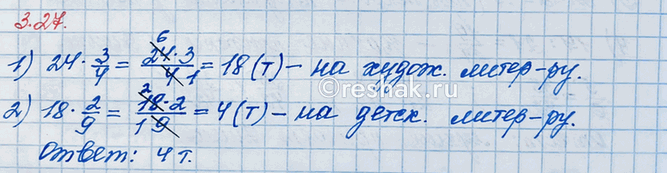 3.27.
1) 24 · 3/4 = 24·3/4 = 18 (т) – на худож. литер-ру.
6
1
2) 18 · 2/9 = 18·2/9 = 4 (т) – на детск. литер-ру.
2
1
Ответ: 4 т.
reshak.ru